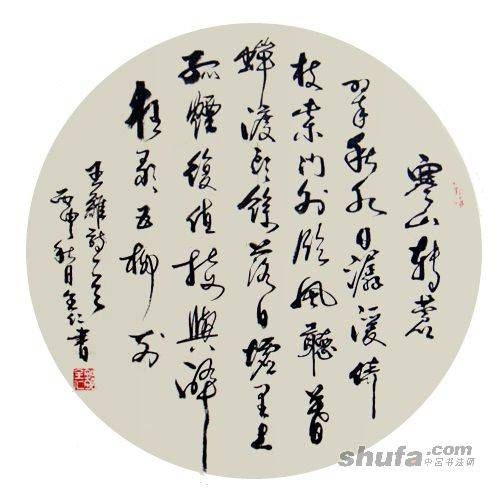 寒山转苍
翠秋水日潺湲倚
杖柴门外临风聽暮
蟬渡头餘落日墟里上
孤煙復值接輿醉
狂歌五柳前
王維詩一首
丙申秋日 仁書
shufa.com
中国书法网